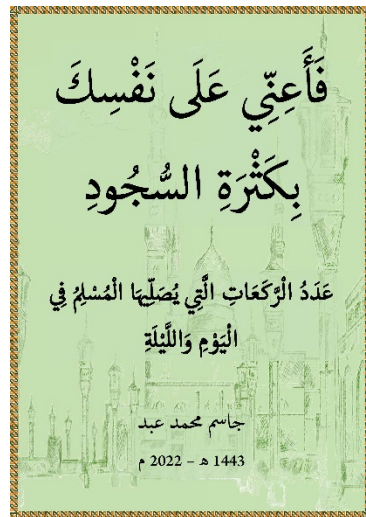 فَأَعِنِّي عَلَى نَفْسِكَ
بِكَثْرَةِ السُّجُودِ
عَدَدُ الْرَّكَعَاتِ الَّتِي يُصَلِّيهَا الْمُسْلِمُ فِي
الْيَوْمِ وَاللَّيْلَةِ
جاسم محمد عبد
1443 هـ - 2022 م